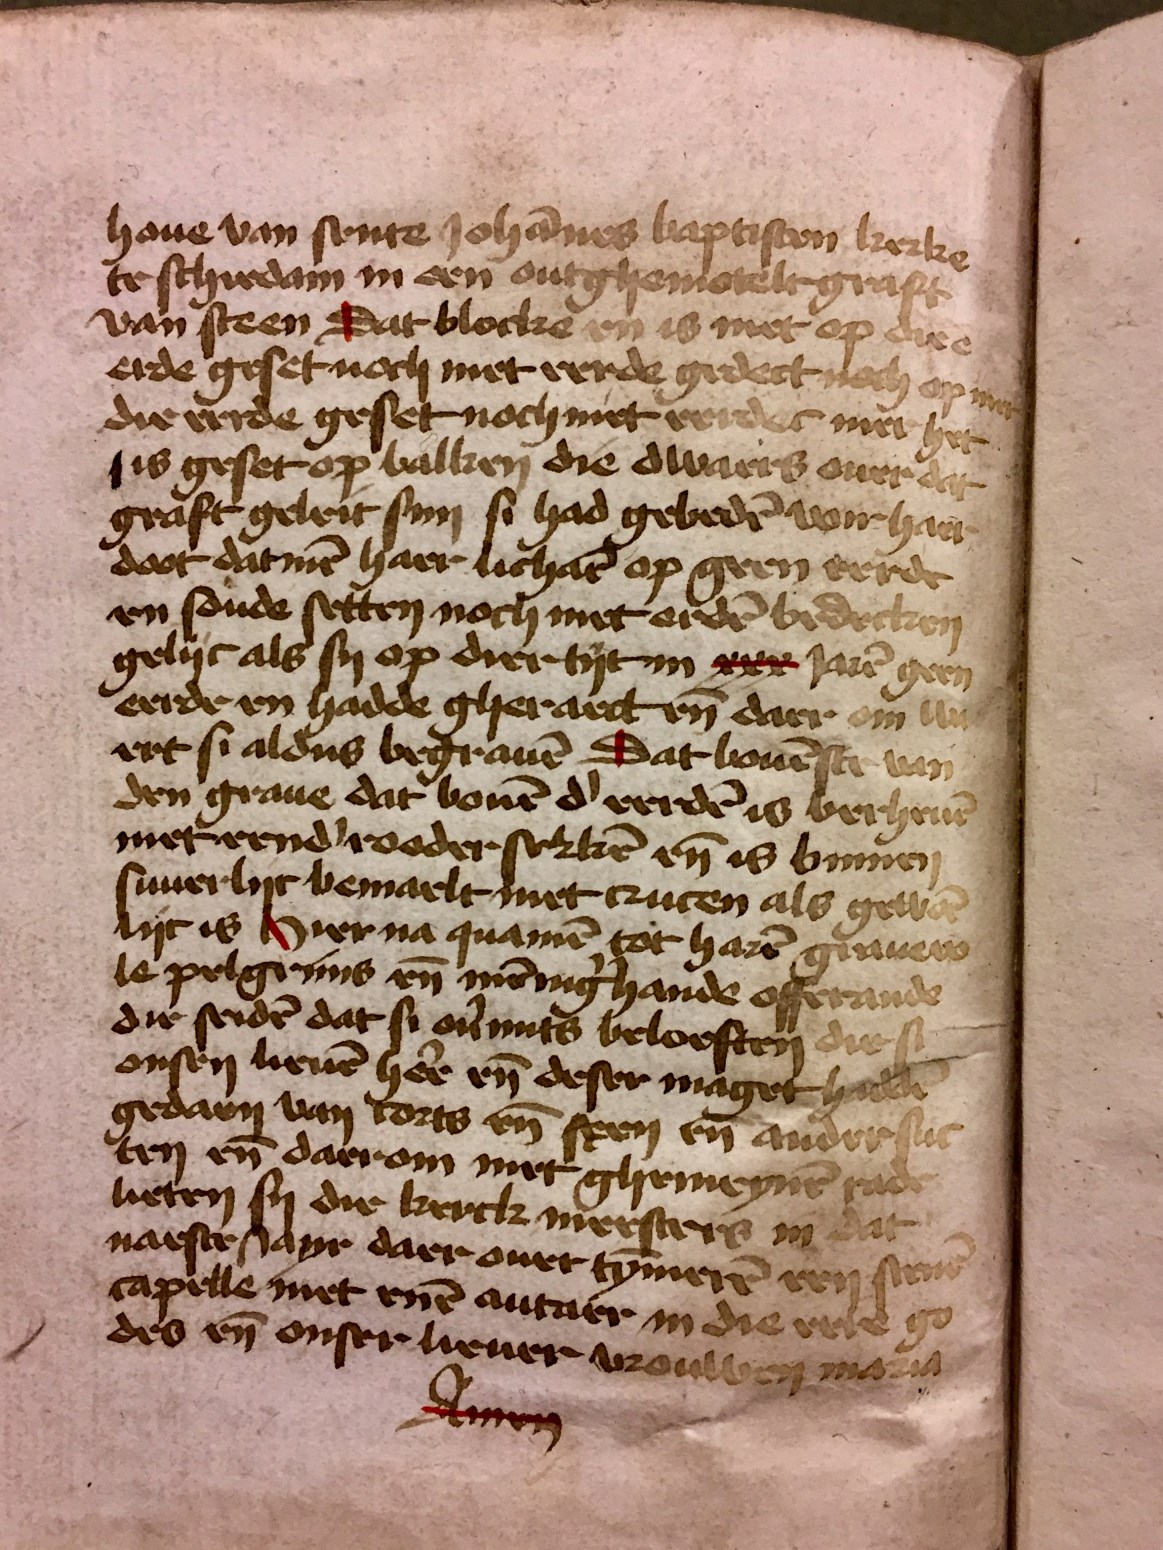 houe van sente Johānes baptisten kerke
te schiedam in een outghemotelt graft
van steen Dat blocke en is niet op die
erde geset noch met eerde gedect noch op
die eerde geset noch niet eerdec mer het
is geset op balken die dwaers ouer dat
graft geleit sijn si had gebedē voir haer
doot datmē haer lichaē op geen eerde
en soude setten noch met erdē bedecken
gelijc als sy op dier tijt in xxx Jarē geen
eerde en hadde gheraect eñ daer om wa
ert si aldus begrauē Dat bouēste van
den graue dat bouē d' eerdē is verheuē
met eend' rooder serkē eñ is binnen
suuerlijc bemaelt met crucen als gewoē
lijc is Hier na quamē tot harē graue ve
le pelgrims eñ mēnig'hande offerande
die seidē dat si ou'mits beloeften die si
onsen lieuē hēre eñ deser maget haddē
gedaen van corts eñ steen eñ ander suc
ten eñ daerom met ghemeynē rade
lieten sy die kerck meesters in dat
naeste Jayr daer ouer tȳmerē een stenē
capelle met enē autaer in die eere go
des eñ onser lieuer vrouwen maria
Amen